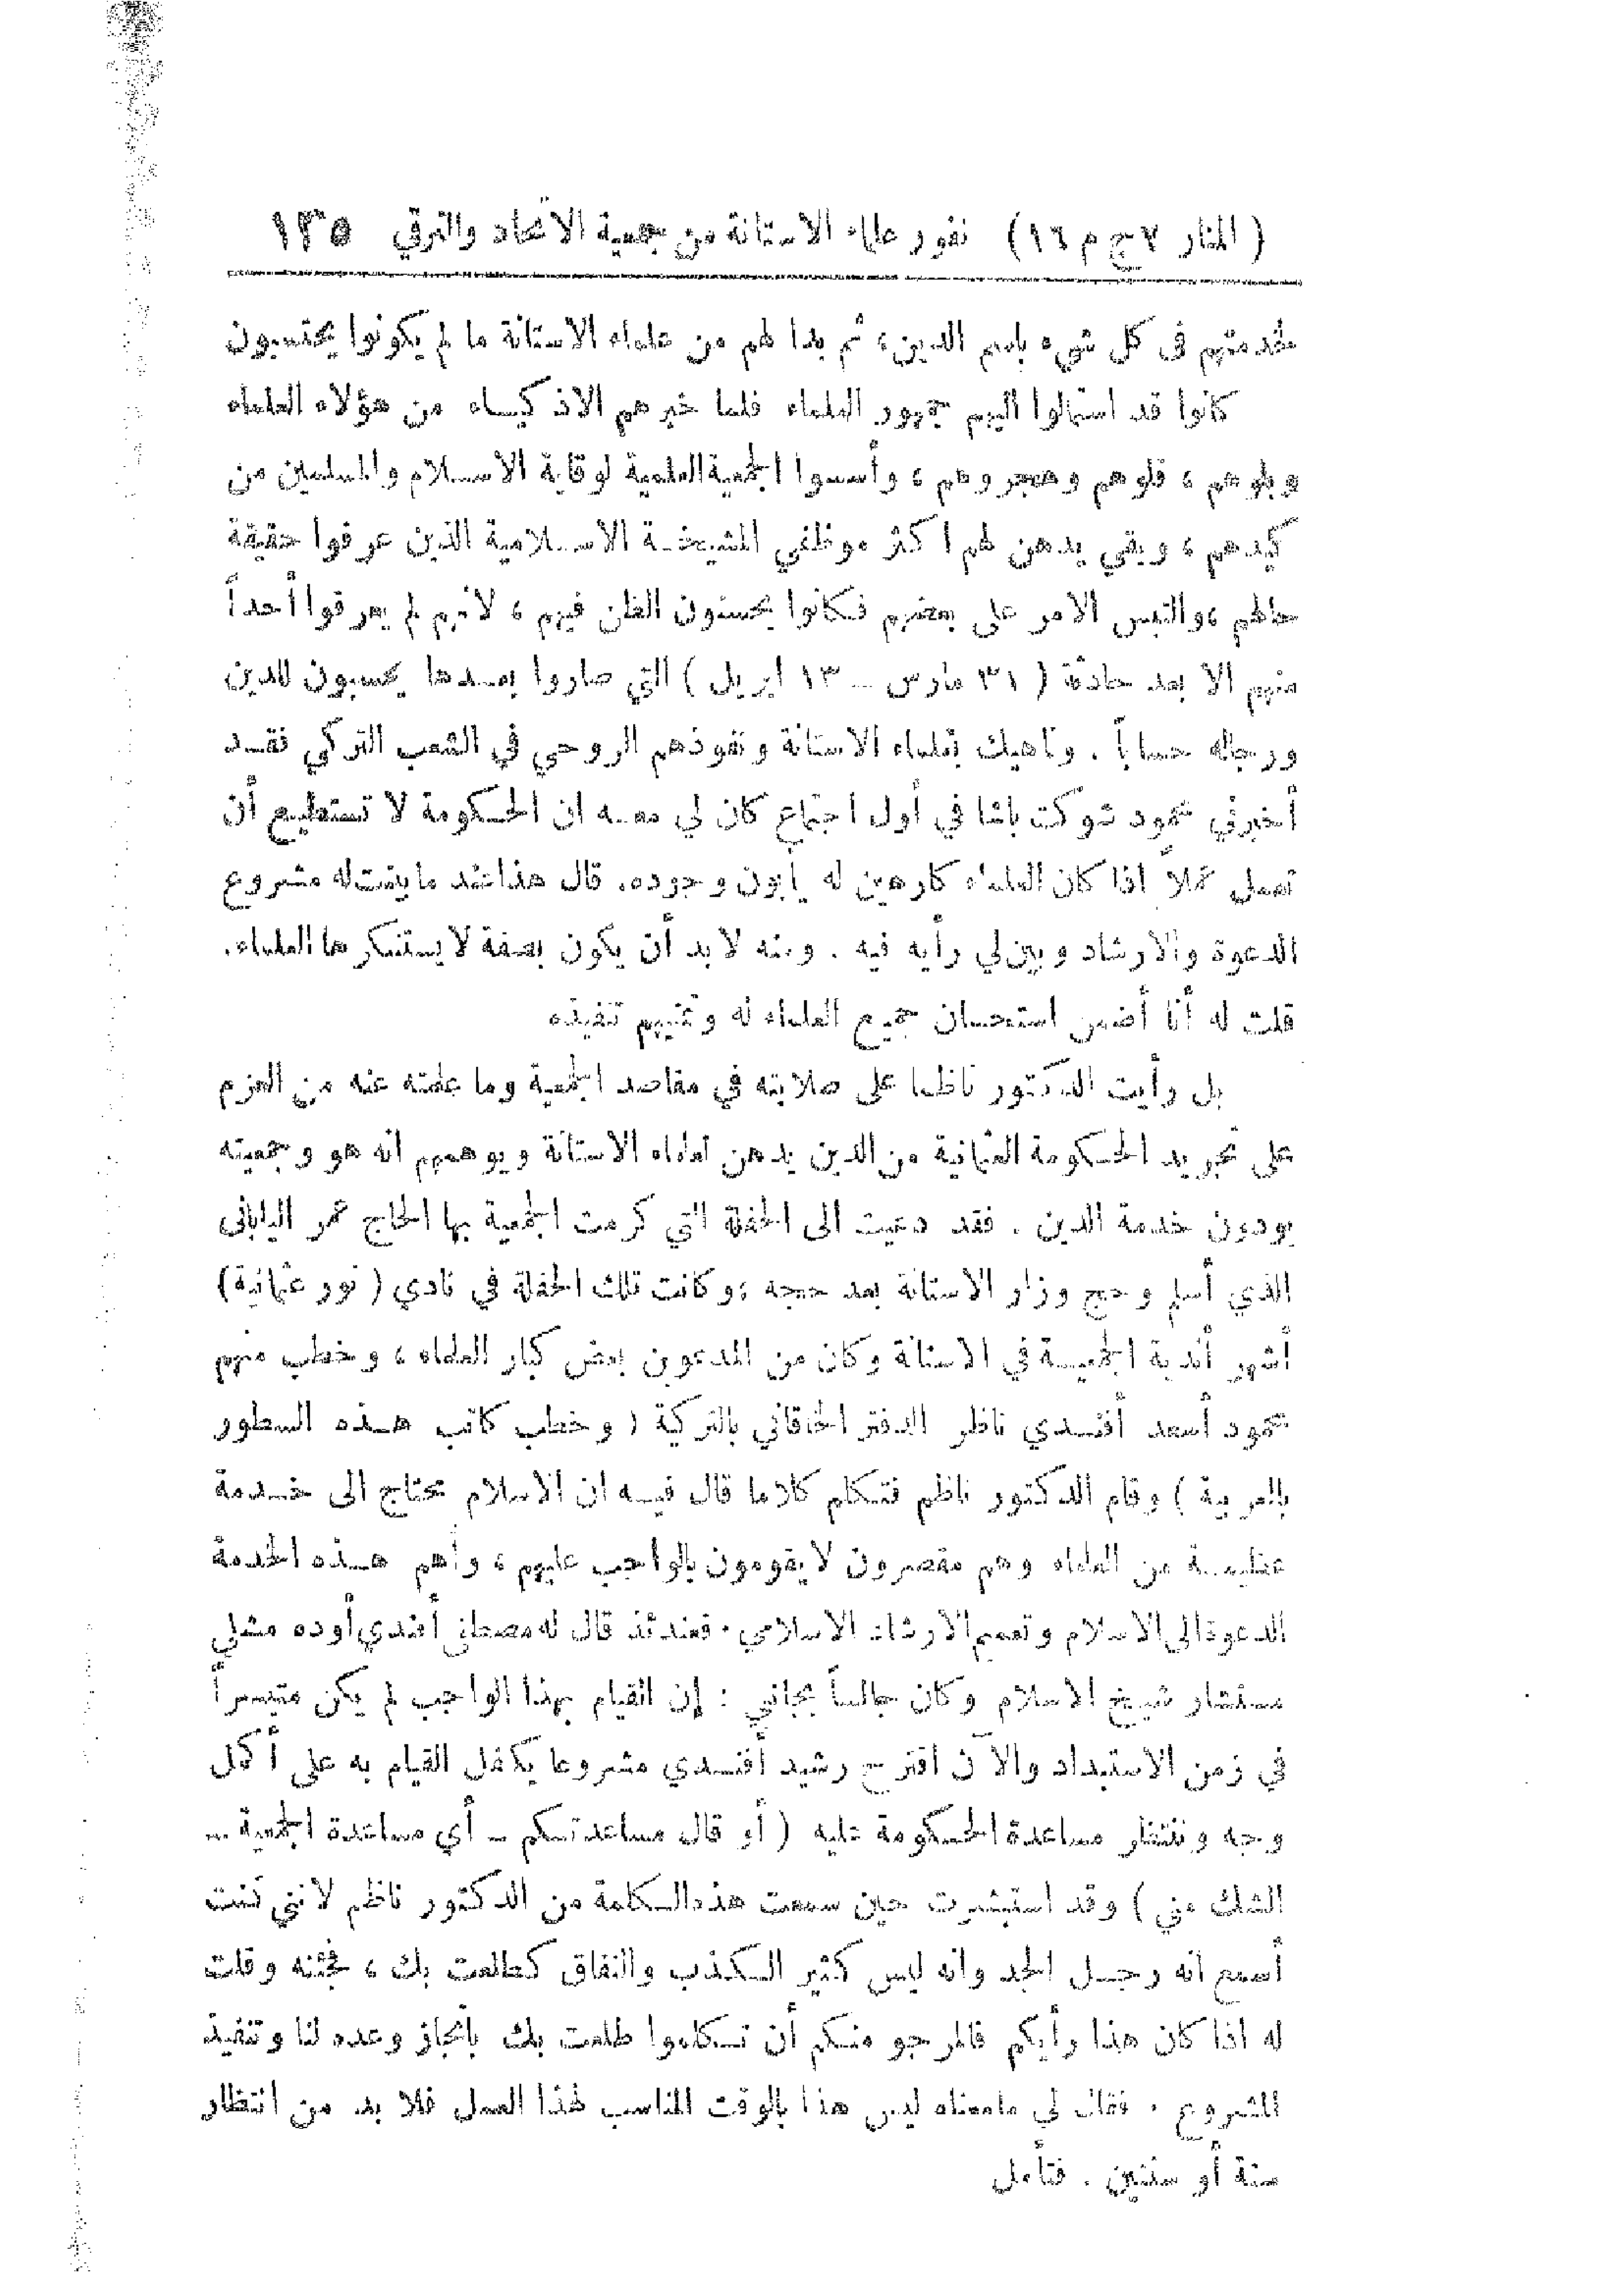 ( المنار ج ٢ م ١٦ ) نفور علماء الاستانة من جمعية الاتحاد والترقي ١٣٥
لخدمتهم في كل شيء باسم الدين، ثم بدا لهم من علماء الاستانة ما لم يكونوا يحتسبون
كانوا قد استمالوا اليهم جمهور العلماء فلما خبرهم الاذكياء من هؤلاء العلماء
وبلوهم ، قلوهم وهجروهم ، وأسسوا الجمعية العلمية لوقاية الاسلام والمسلمين من
كيدهم ، وبقي يدهن لهم اكثر موظفي المشيخة الاسلامية الذين عرفوا حقيقة
حالهم ، والتبس الامر على بعضهم فكانوا يحسنون الظن فيهم ، لانهم لم يعرفوا أحداً
منهم الا بعد حادثة ( ٣١ مارس – ١٣ ابريل ) التي صاروا بعدها يحسبون للدين
ورجاله حساباً . وناهيك بعلماء الاستانة ونفوذهم الروحي في الشعب التركي فقد
أخبرني محمود شوكت باشا في أول اجتماع كان لي معه ان الحكومة لا تستطيع أن
تعمل عملاً اذا كان العلماء كارهين له يأبون وجوده. قال هذا عند ما بينت له مشروع
الدعوة والارشاد وبين لي رأيه فيه . ومنه لا بد أن يكون بصفة لا يستنكرها العلماء.
قلت له أنا أضمن استحسان جميع العلماء له وتمنيهم تنفيذه
بل رأيت الدكتور ناظما على صلابته في مقاصد الجمعية وما علمته عنه من العزم
على تجريد الحكومة العثمانية من الدين يدهن لعلماء الاستانة ويوهمهم انه هو وجمعيته
يودون خدمة الدين . فقد دعيت الى الحفلة التي كرمت الجمعية بها الحاج عمر الياباني
الذي أسلم وحج وزار الاستانة بعد حجه ، وكانت تلك الحفلة في نادي ( نور عثمانية )
أشهر أندية الجمعية في الاستانة وكان من المدعوين بعض كبار العلماء ، وخطب منهم
محمود أسعد أفندي ناظر الدفتر الخاقاني بالتركية ( وخطب كاتب هذه السطور
بالعربية ) وقام الدكتور ناظم فتكلم كلاما قال فيه ان الاسلام محتاج الى خدمة
عظيمة من العلماء وهم مقصرون لا يقومون بالواجب عليهم ، وأهم هذه الخدمة
الدعوة الى الاسلام وتعميم الارشاد الاسلامي . فعندئذ قال له مصطفى أفندي أوده مشلي
مستشار شيخ الاسلام وكان جالساً بجانبي : إن القيام بهذا الواجب لم يكن متيسراً
في زمن الاستبداد والآن اقترح رشيد أفندي مشروعا يكفل القيام به على أكمل
وجه وننتظر مساعدة الحكومة عليه ( أو قال مساعدتكم – أي مساعدة الجمعية –
الشك مني ) وقد استبشرت حين سمعت هذه الكلمة من الدكتور ناظم لانني كنت
أسمع انه رجل الجد وانه ليس كثير الكذب والنفاق كطلعت بك ، فجئته وقلت
له اذا كان هذا رأيكم فالمرجو منكم أن تكلموا طلعت بك بانجاز وعده لنا وتنفيذ
المشروع . فقال لي ما معناه ليس هذا بالوقت المناسب لهذا العمل فلا بد من انتظار
سنة أو سنتين . فتأمل